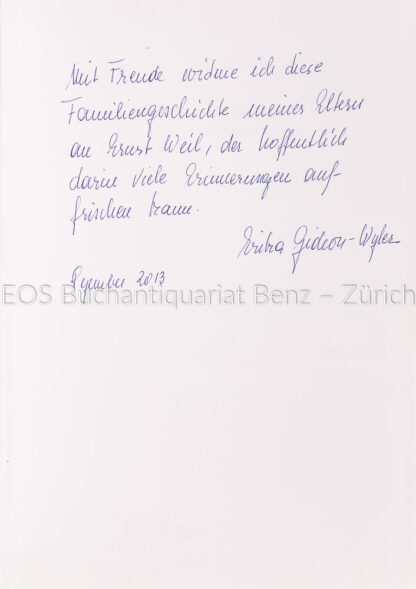 Mit Freude widme ich diese
Familiengeschichte meiner Eltern
an Ernst Weil, der hoffentlich
darin viele Erinnerungen auf-
frischen kann.
Erika Gideon-Wyler
Dezember 2013
EOS Buchantiquariat Benz – Zürich